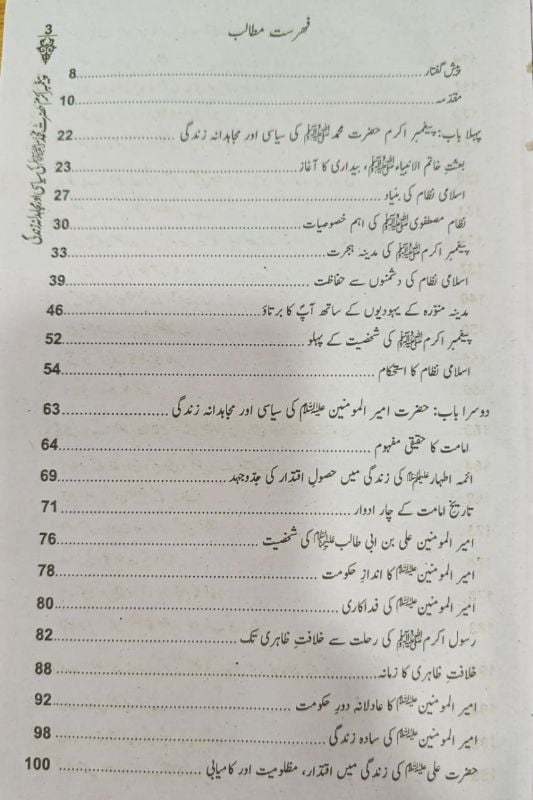 3
فہرست مطالب
پیش گفتار 8
مقدمہ 10
پہلا باب: پیغمبر اکرم حضرت محمد ﷺ کی سیاسی اور مجاہدانہ زندگی 22
بعثتِ خاتم الانبیاء ﷺ، بیداری کا آغاز 23
اسلامی نظام کی بنیاد 27
نظام مصطفوی ﷺ کی اہم خصوصیات 30
پیغمبر اکرم ﷺ کی مدینہ ہجرت 33
اسلامی نظام کی دشمنوں سے حفاظت 39
مدینہ منوّرہ کے یہودیوں کے ساتھ آپؐ کا برتاؤ 46
پیغمبر اکرم ﷺ کی شخصیت کے پہلو 52
اسلامی نظام کا استحکام 54
دوسرا باب: حضرت امیر المومنین علیہ السلام کی سیاسی اور مجاہدانہ زندگی 63
امامت کا حقیقی مفہوم 64
ائمہ اطہار علیہم السلام کی زندگی میں حصولِ اقتدار کی جدّوجہد 69
تاریخ امامت کے چار ادوار 71
امیر المومنین علی بن ابی طالب علیہ السلام کی شخصیت 76
امیر المومنین علیہ السلام کا اندازِ حکومت 78
امیر المومنین علیہ السلام کی فداکاری 80
رسول اکرم ﷺ کی رحلت سے خلافتِ ظاہری تک 82
خلافتِ ظاہری کا زمانہ 88
امیر المومنین علیہ السلام کا عادلانہ دورِ حکومت 92
امیر المومنین علیہ السلام کی سادہ زندگی 98
حضرت علی علیہ السلام کی زندگی میں اقتدار، مظلومیت اور کامیابی 100